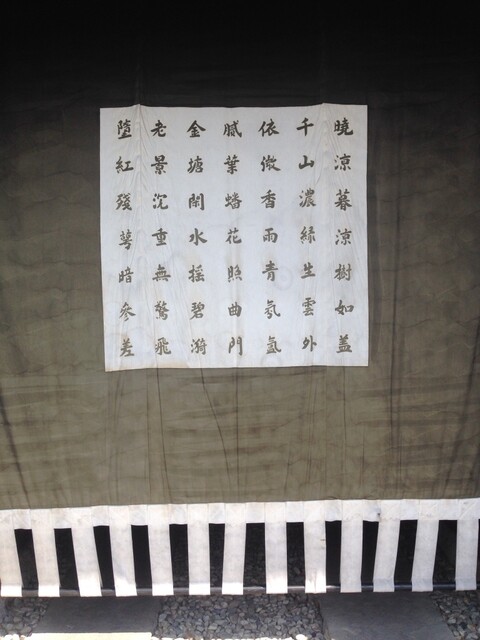 曉涼暮涼樹如蓋
千山濃緑生雲外
依微香雨青氛氳
膩葉蟠花照曲門
金塘閑水搖碧漪
老景沈重無驚飛
墮紅殘萼暗參差